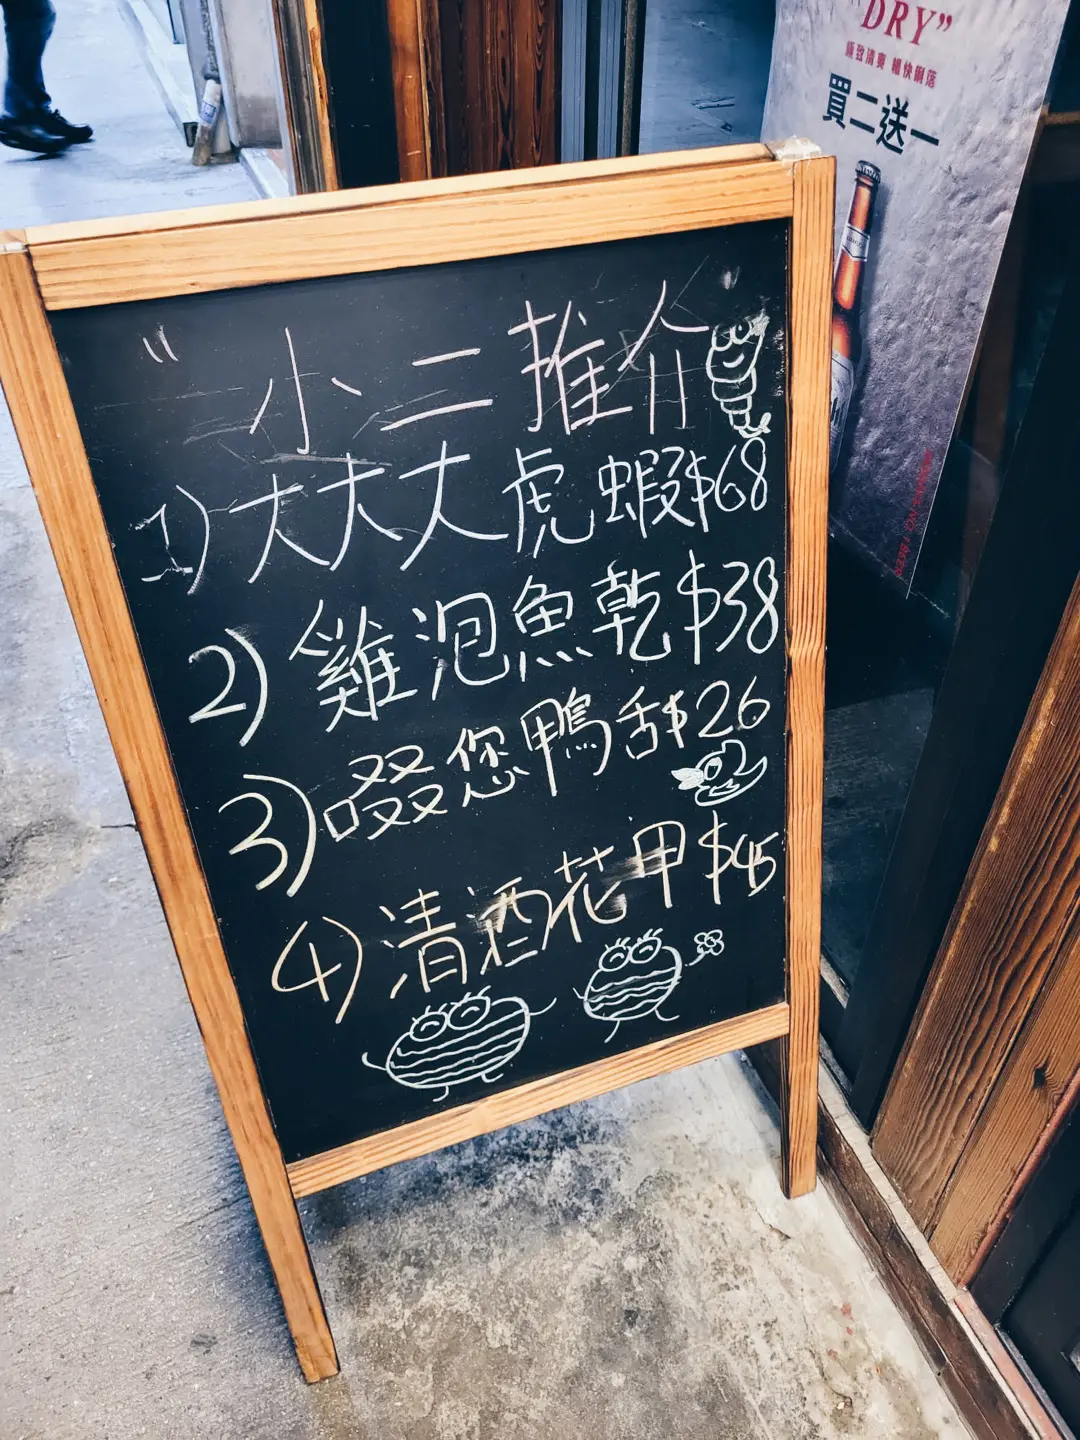 "DRY"
極致清爽 暢快俐落
買二送一
" 小二推介
1) 大大大虎蝦$68
2) 雞泡魚乾$38
3) 啜您鴨舌$26
4) 清酒花甲$45